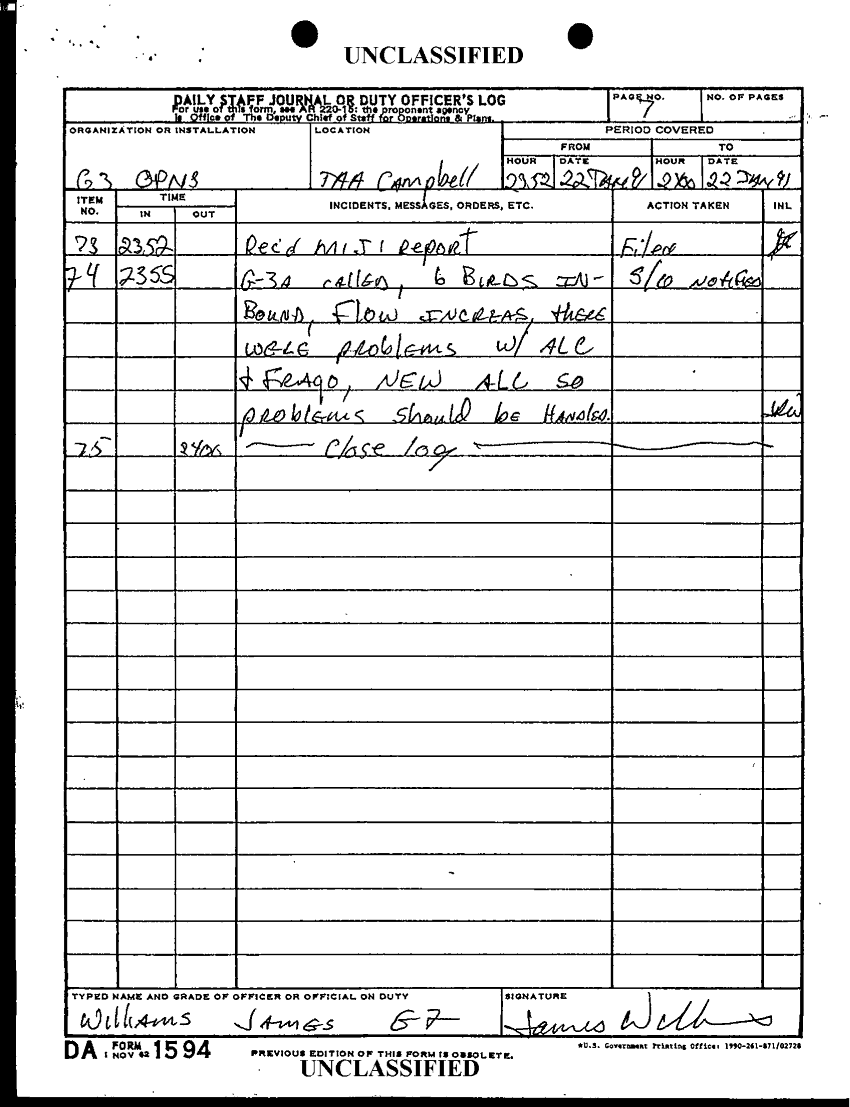 UNCLASSIFIED
DAILY STAFF JOURNAL OR DUTY OFFICER'S LOG
For use of this form, see AR 220-15: the proponent agency
is Office of The Deputy Chief of Staff for Operations & Plans.
PAGE NO.
7
NO. OF PAGES
ORGANIZATION OR INSTALLATION
G3 OPNS
LOCATION
TAA Campbell
PERIOD COVERED
FROM TO
HOUR DATE HOUR DATE
2352 22 JAN 91 2400 22 JAN 91
ITEM NO. TIME IN OUT INCIDENTS, MESSAGES, ORDERS, ETC. ACTION TAKEN INL
73 2352 Rec'd MIJI REPORT Filed
74 2355 G-3A CALLED, 6 BIRDS IN- S/O NOTIFIED
BOUND, FLOW INCREAS, THERE
WERE PROBLEMS W/ ALC
& FRAGO, NEW ALC SO
PROBLEMS Should be HANDLED.
75 2400 Close log
TYPED NAME AND GRADE OF OFFICER OR OFFICIAL ON DUTY
Williams JAMES E7
SIGNATURE
James Williams
DA FORM 1 NOV 62 1594
PREVIOUS EDITION OF THIS FORM IS OBSOLETE.
*U.S. Government Printing Office: 1990-261-871/02728
UNCLASSIFIED